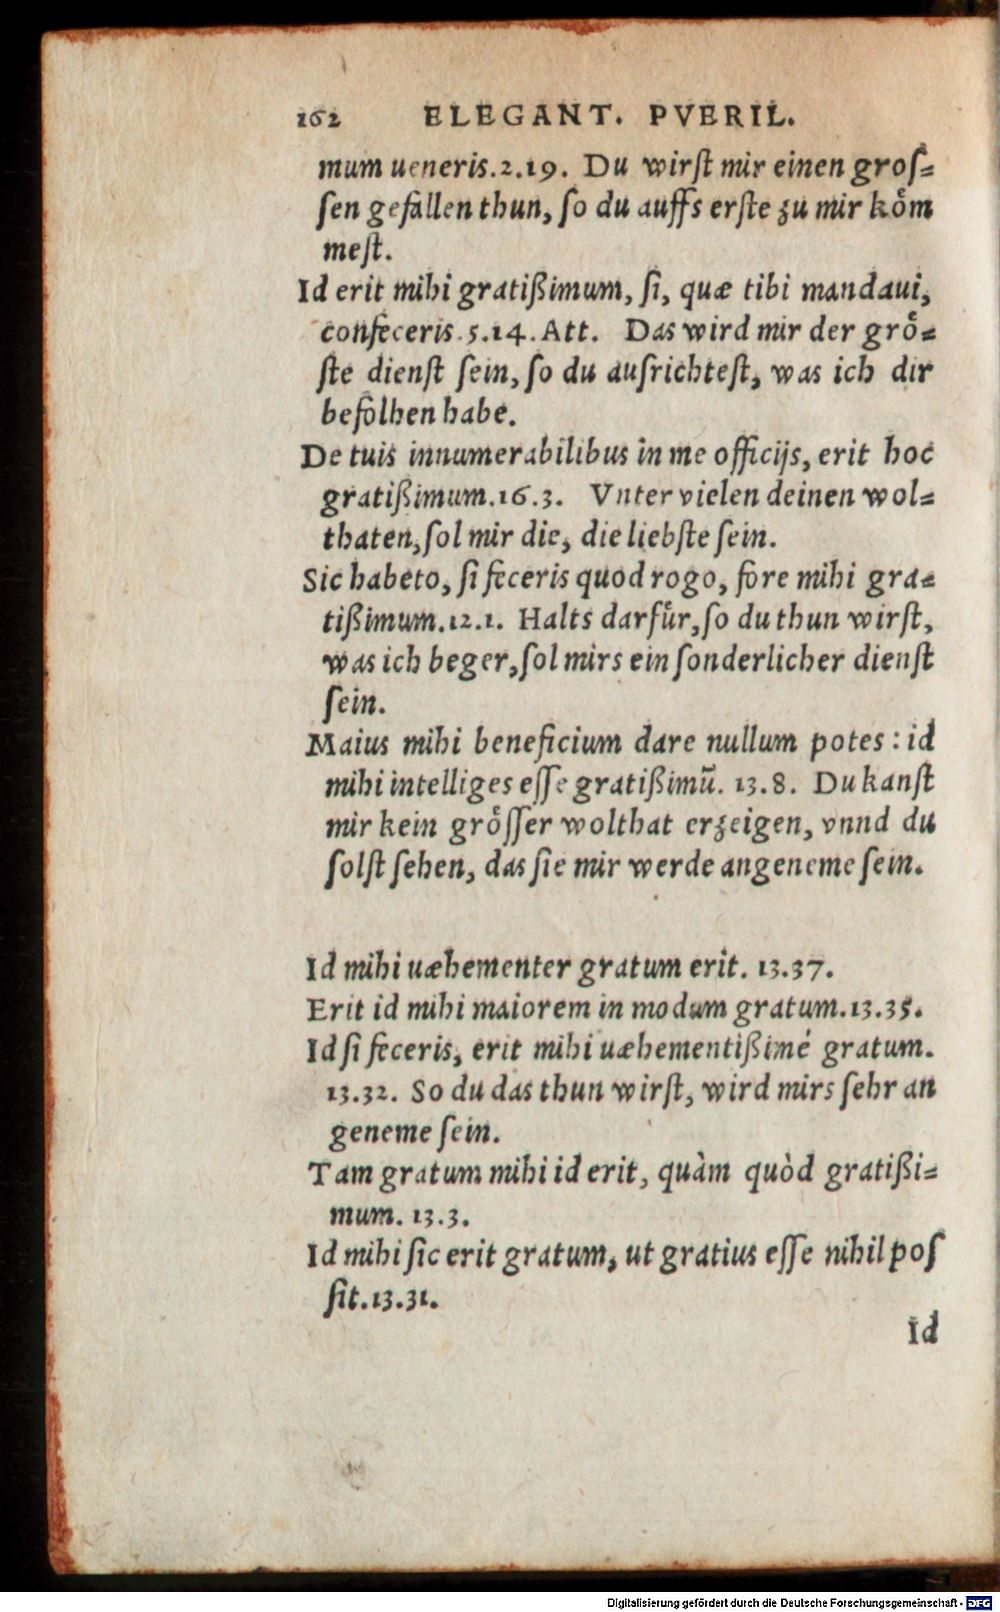 162 ELEGANT. PVERIL.
mum ueneris.2.19. Du wirſt mir einen groſ=
ſen gefallen thun, ſo du auffs erſte zu mir koͤm
meſt.
Id erit mihi gratißimum, ſi, quæ tibi mandaui,
confeceris.5.14.Att. Das wird mir der groͤ=
ſte dienſt ſein, ſo du auſrichteſt, was ich dir
befolhen habe.
De tuis innumerabilibus in me officijs, erit hoc
gratißimum.16.3. Vnter vielen deinen wol=
thaten, ſol mir die, die liebſte ſein.
Sic habeto, ſi feceris quod rogo, fore mihi gra=
tißimum.12.1. Halts darfuͤr, ſo du thun wirſt,
was ich beger, ſol mirs ein ſonderlicher dienſt
ſein.
Maius mihi beneficium dare nullum potes: id
mihi intelliges eſſe gratißimũ. 13.8. Du kanſt
mir kein groͤſſer wolthat erzeigen, vnnd du
ſolſt ſehen, das ſie mir werde angeneme ſein.
Id mihi uæhementer gratum erit. 13.37.
Erit id mihi maiorem in modum gratum.13.35.
Id ſi feceris, erit mihi uæhementißimé gratum.
13.32. So du das thun wirſt, wird mirs ſehr an
geneme ſein.
Tam gratum mihi id erit, quàm quòd gratißi=
mum. 13.3.
Id mihi ſic erit gratum, ut gratius eſſe nihil poſ
ſit.13.31.
Id
Digitalisierung gefördert durch die Deutsche Forschungsgemeinschaft - DFG